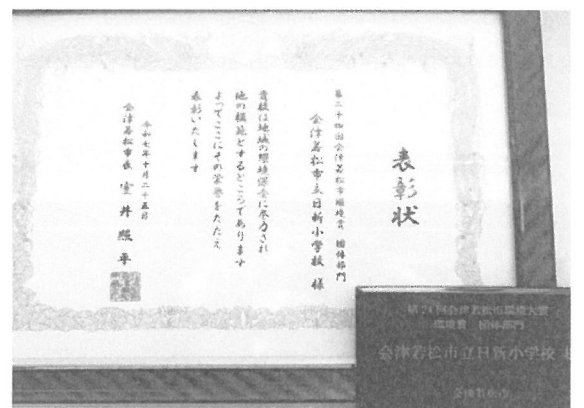 表彰状
第二十四回会津若松市環境賞 団体部門
会津若松市立日新小学校 様
貴校は地域の環境保全に尽力され
他の模範とするところであります
よってここにその栄誉をたたえ
表彰いたします
令和七年十月二十五日
会津若松市長 室井照平
第24回会津若松市環境大賞
環境賞 団体部門
会津若松市立日新小学校
会津若松市